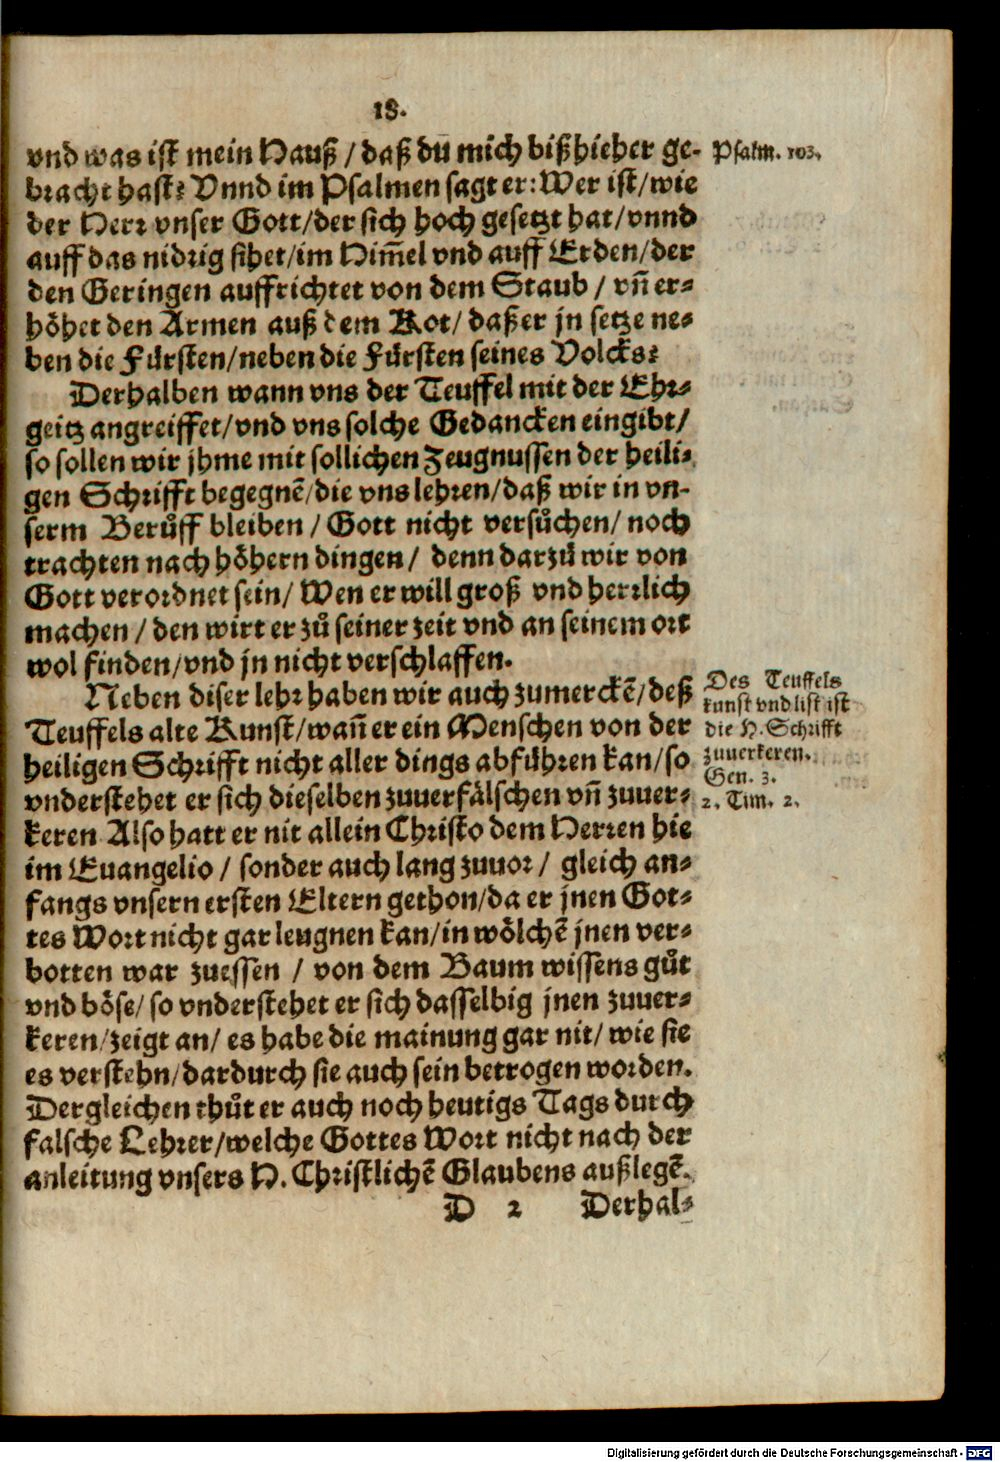 18.
vnd was ist mein Hauß / daß du mich bißhieher ge-
Psalm. 103.
bracht hast? Vnnd im Psalmen sagt er: Wer ist/wie
der Herr vnser Gott/der sich hoch gesetzt hat/vnnd
auff das nidrig sihet/im Him̃el vnd auff Erden/der
den Geringen auffrichtet von dem Staub / vñ er-
höhet den Armen auß dem Kot/ daß er jn setze ne-
ben die Fürsten/neben die Fürsten seines Volcks?
Derhalben wann vns der Teuffel mit der Ehr-
geitz angreiffet/vnd vns solche Gedancken eingibt/
so sollen wir jhme mit sollichen Zeugnussen der heili-
gen Schrifft begegnẽ/die vns lehren/daß wir in vn-
serm Berůff bleiben / Gott nicht versůchen/ noch
trachten nach höhern dingen / denn darzů wir von
Gott verordnet sein/ Wen er will groß vnd herrlich
machen / den wirt er zů seiner zeit vnd an seinem ort
wol finden/vnd jn nicht verschlaffen.
Neben diser lehr haben wir auch zumerckẽ/deß
Teuffels alte Kunst/wañ er ein Menschen von der
heiligen Schrifft nicht aller dings abführen kan/so
vnderstehet er sich dieselben zuuerfälschen vñ zuuer-
keren Also hatt er nit allein Christo dem Herren hie
im Euangelio / sonder auch lang zuuor / gleich an-
fangs vnsern ersten Eltern gethon/da er jnen Got-
tes Wort nicht gar leugnen kan/in wölchẽ jnen ver-
botten war zuessen / von dem Baum wissens gůt
vnd böse/ so vnderstehet er sich dasselbig jnen zuuer-
keren/zeigt an/ es habe die mainung gar nit/ wie sie
es verstehn/dardurch sie auch sein betrogen worden.
Dergleichen thůt er auch noch heutigs Tags durch
falsche Lehrer/welche Gottes Wort nicht nach der
anleitung vnsers H. Christlichẽ Glaubens außlegẽ.
Des Teuffels
kunst vnd list ist
die H. Schrifft
zuuerkeren.
Gen. 3.
2. Tim. 2.
D 2 Derhal-
Digitalisierung gefördert durch die Deutsche Forschungsgemeinschaft - DFG